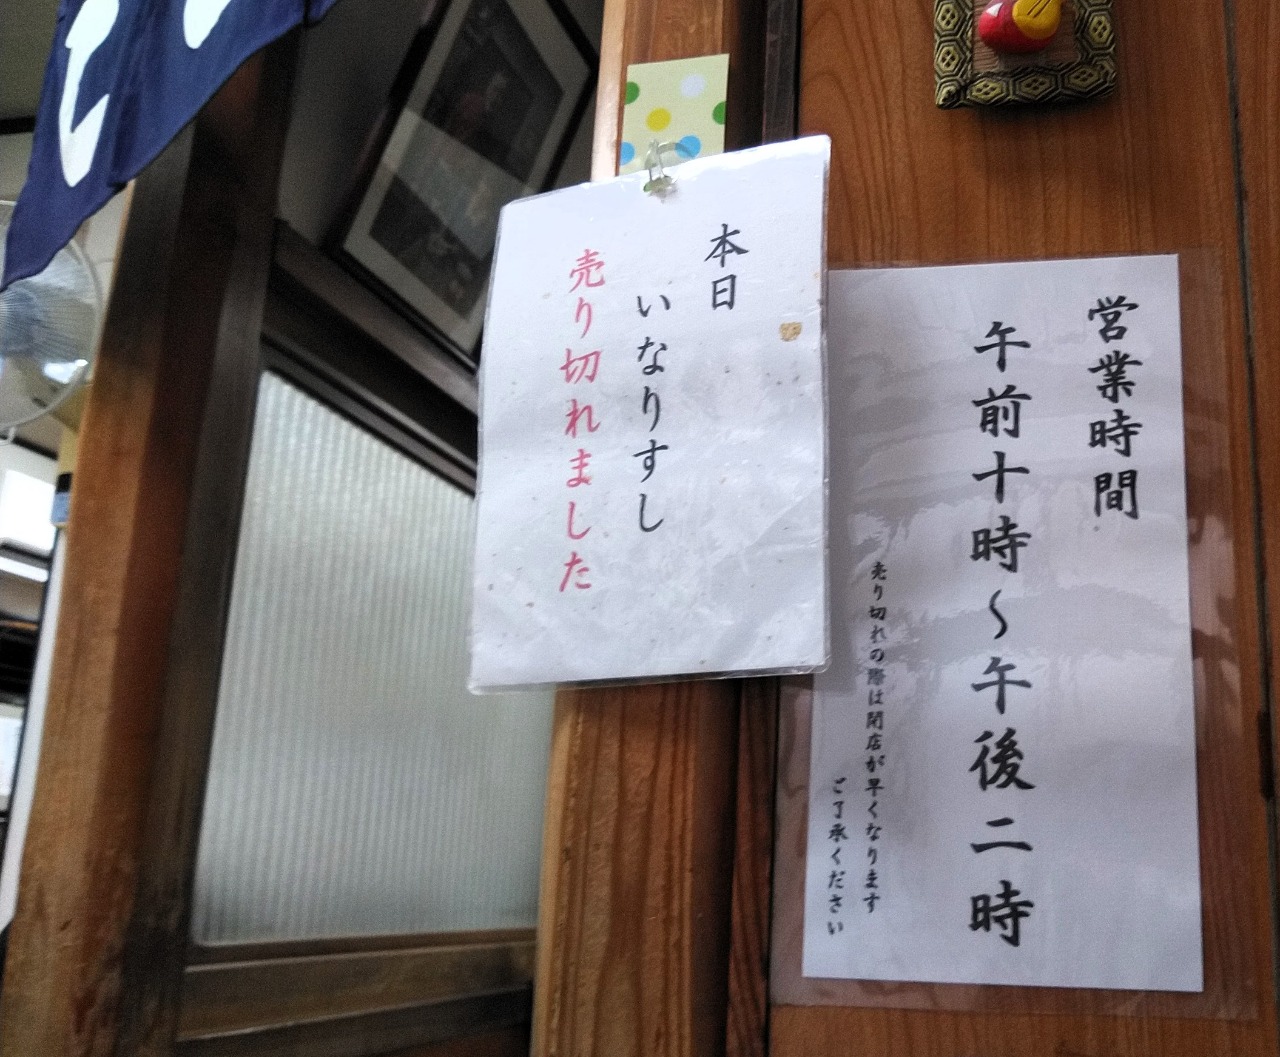 本日
いなりすし
売り切れました
営業時間
午前十時～午後二時
売り切れの際は閉店が早くなります
ご了承ください